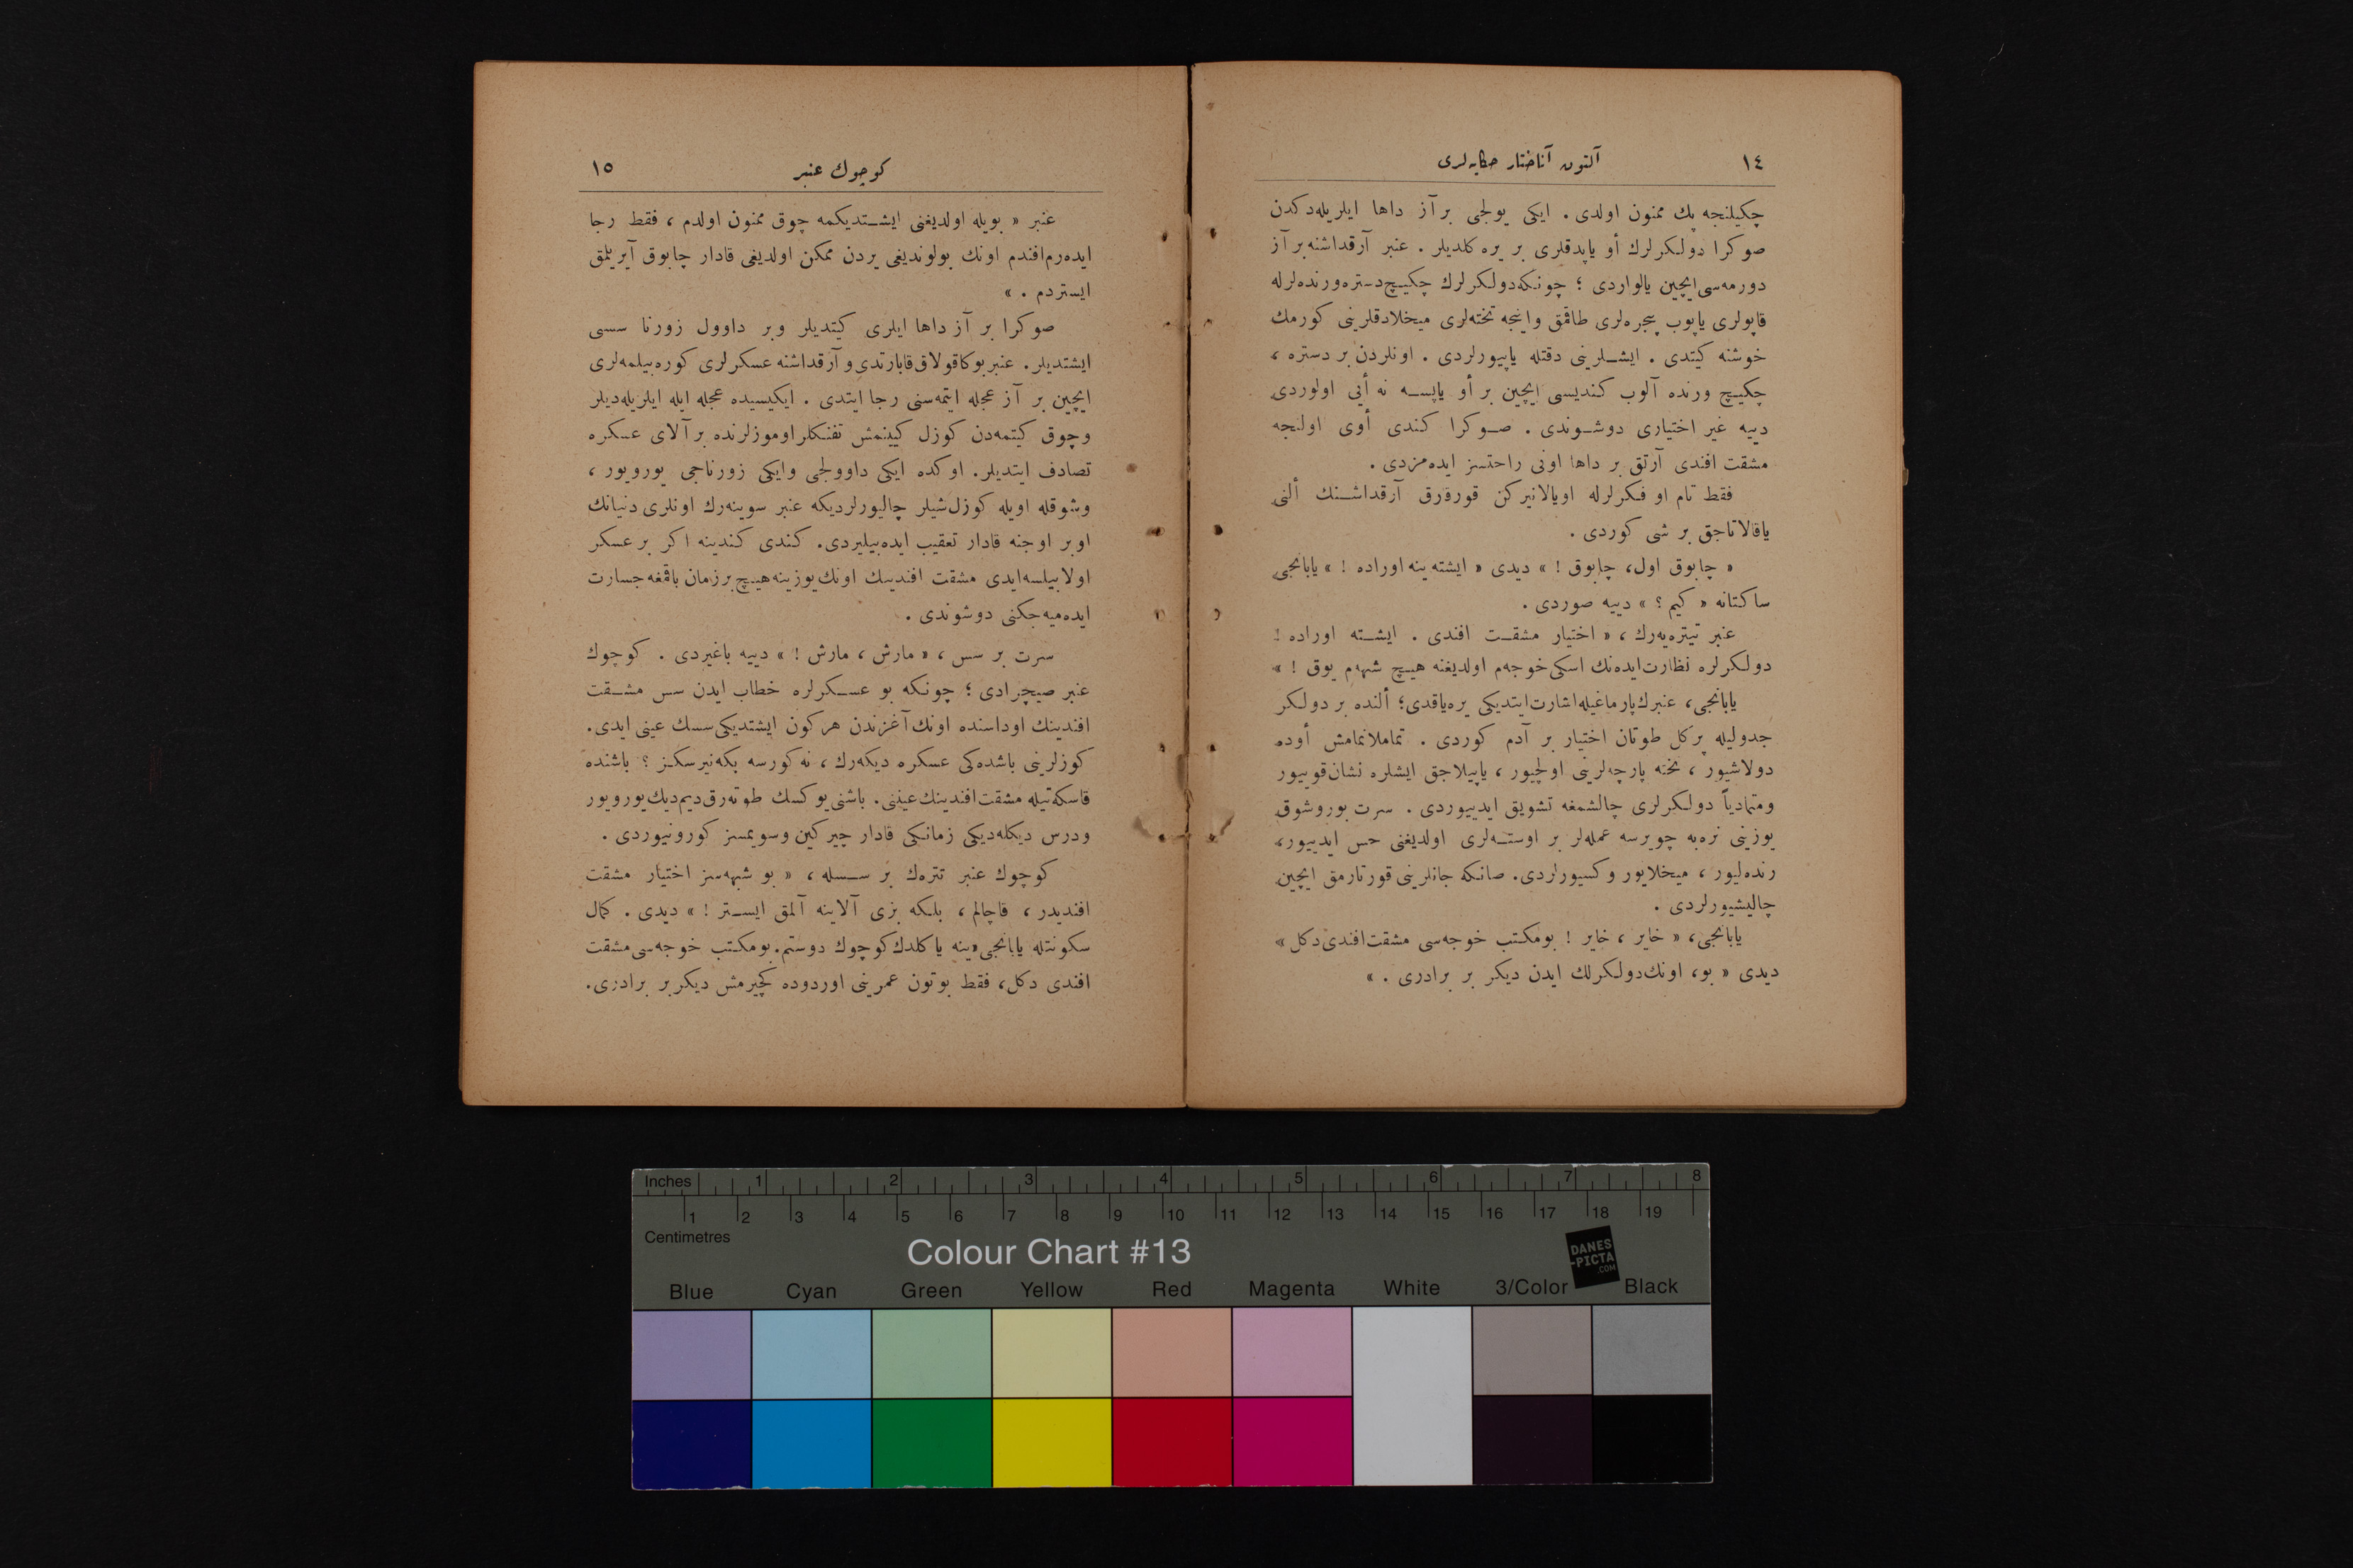 ١٤
آلتون آناختار حكايه‌لرى
چكيلنجه پك ممنون اولدى . ايكى يولجى برآز داها ايلريله‌دكدن
صوكرا دولكرلرك أو ياپدقلرى بر يره كلديلر . عنبر آرقداشنه برآز
دورمه‌سى ايچين يالواردى ؛ چونكه دولكرلرك چكيچ دستره ورنده‌لرله
قاپولرى ياپوب پنجره‌لرى طاقمق واينجه تخته‌لرى ميخلادقلرينى كورمك
خوشنه كيتدى . ايشلرينى دقتله ياپيورلردى . اونلردن بر دستره ،
چكيچ ورنده آلوب كنديسى ايچين بر أو ياپسه نه أيى اولوردى
دييه غير اختيارى دوشوندى . صوكرا كندى أوى اولنجه
مشقت افندى آرتق بر داها اونى راحتسز ايده‌مزدى .
فقط تام او فكرلرله اويالانيركن قورقرق آرقداشنك ألنى
ياقالاتاجق بر شى كوردى .
« چابوق اول، چابوق ! » ديدى « ايشته ينه اوراده ! » يابانجى
ساكتانه « كيم ؟ » دييه صوردى .
عنبر تيتره‌يه‌رك ، « اختيار مشقت افندى . ايشته اوراده !
دولكرلره نظارت ايده‌نك اسكى خوجه‌م اولديغنه هيچ شبهه‌م يوق ! »
يابانجى، عنبرك پارماغيله اشارت ايتديكى يره باقدى؛ ألنده بر دولكر
جدوليله پركل طوتان اختيار بر آدم كوردى . تماملانمامش أوده
دولاشيور ، تخته پارچه‌لرينى اولچيور ، ياپيلاجق ايشلره نشان قوييور
ومتمادياً دولكرلرى چالشمغه تشويق ايدييوردى . سرت بوروشوق
يوزينى نره‌يه چويرسه عمله‌لر بر اوسته‌لرى اولديغنى حس ايدييور،
رنده‌ليور ، ميخلايور وكسيورلردى. صانكه جانلرينى قورتارمق ايچين
چاليشيورلردى .
يابانجى، « خاير ، خاير ! بو مكتب خوجه‌سى مشقت افندى دكل »
ديدى « بو، اونك دولكرلك ايدن ديكر بر برادرى . »
كوچوك عنبر
١٥
عنبر « بويله اولديغنى ايشتديكمه چوق ممنون اولدم ، فقط رجا
ايده‌رم افندم اونك بولونديغى يردن ممكن اولديغى قادار چابوق آيريلمق
ايستردم . »
صوكرا بر آز داها ايلرى كيتديلر وبر داوول زورنا سسى
ايشتديلر . عنبر بوكا قولاق قابارتدى و آرقداشنه عسكرلرى كوره‌بيلمه‌لرى
ايچين بر آز عجله ايتمه‌سنى رجا ايتدى . ايكيسيده عجله ايله ايلريله‌ديلر
وچوق كيتمه‌دن كوزل كيينمش تفنكلر اوموزلرنده بر آلاى عسكره
تصادف ايتديلر . اوكده ايكى داوولجى وايكى زورناجى يورويور ،
وشوقله اويله كوزل شيلر چاليورلرديكه عنبر سوينه‌رك اونلرى دنيانك
اوبر اوجنه قادار تعقيب ايده‌بيليردى . كندى كندينه اكر بر عسكر
اولابيلسه‌ايدى مشقت افندينك اونك يوزينه هيچ بر زمان باقمغه جسارت
ايده‌ميه‌جكنى دوشوندى .
سرت بر سس ، « مارش ، مارش ! » دييه باغيردى . كوچوك
عنبر صيچرادى ؛ چونكه بو عسكرلره خطاب ايدن سس مشقت
افندينك اوداسنده اونك آغزندن هركون ايشتديكى سسك عينى ايدى .
كوزلرينى باشده‌كى عسكره ديكه‌رك ، نه كورسه بكه‌نيرسكز ؟ باشنده
قاسكه‌تيله مشقت افندينك عينى . باشنى يوكسك طوته‌رق ديم ديك يورويور
ودرس ديكله‌ديكى زمانكى قادار چيركين وسويمسز كورونيوردى .
كوچوك عنبر تتره‌ك بر سسله ، « بو شبهه‌سز اختيار مشقت
افنديدر ، قاچالم ، بلكه بزى آلاينه آلمق ايستر ! » ديدى . كمال
سكونتله يابانجى « ينه ياكلدك كوچوك دوستم. بو مكتب خوجه‌سى مشقت
افندى دكل، فقط بوتون عمرينى اوردوده كچيرمش ديكر بر برادرى.
Inches 1 2 3 4 5 6 7 8
1 2 3 4 5 6 7 8 9 10 11 12 13 14 15 16 17 18 19
Centimetres
Colour Chart #13
DANES
-PICTA
.COM
Blue Cyan Green Yellow Red Magenta White 3/Color Black